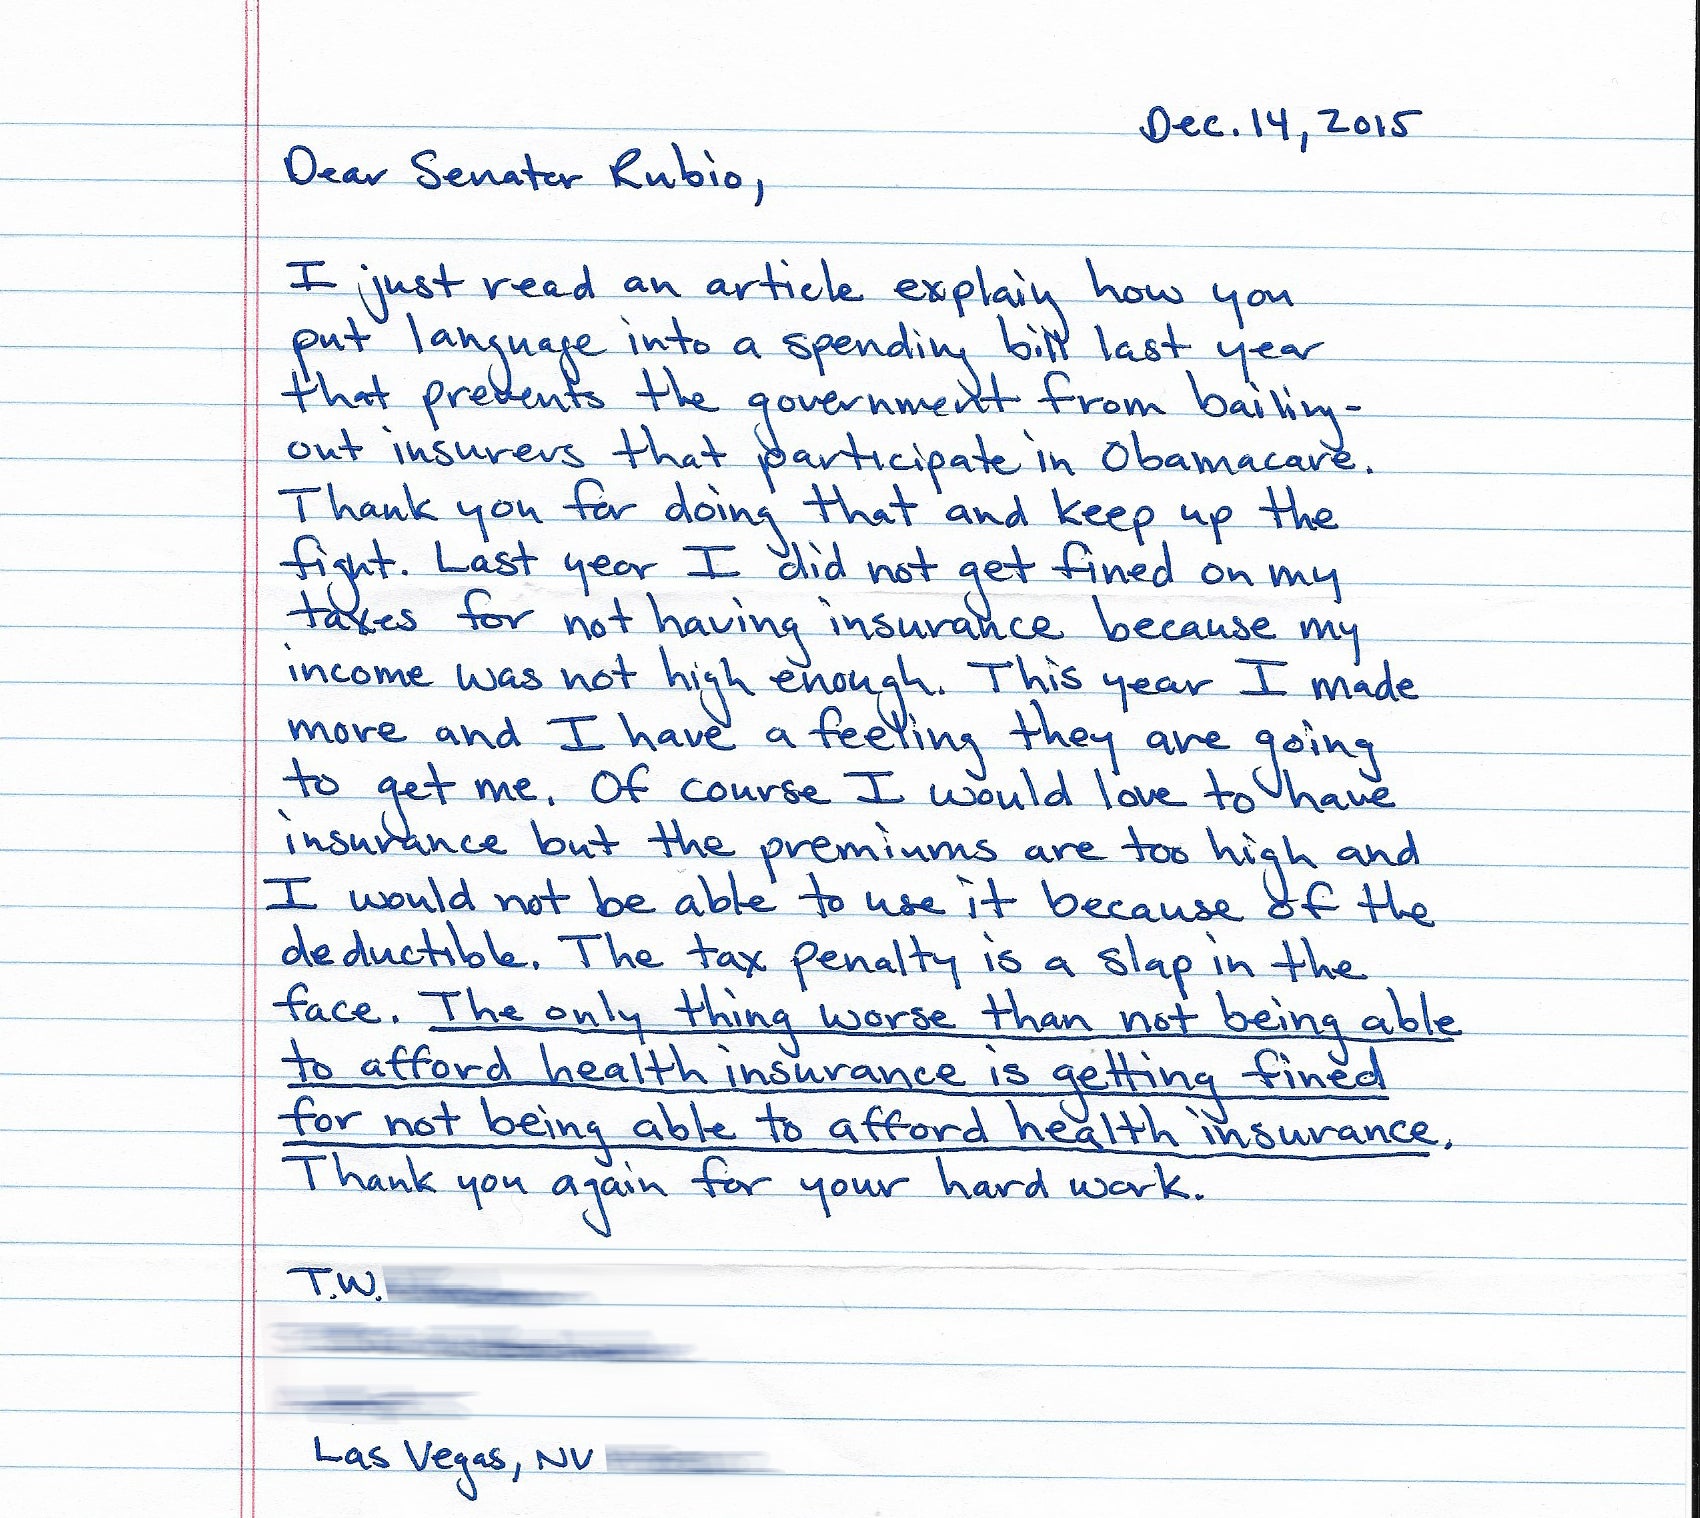 Dec. 14, 2015
Dear Senator Rubio,
I just read an article explaing how you
put language into a spending bill last year
that prevents the government from bailing-
out insurers that participate in Obamacare.
Thank you for doing that and keep up the
fight. Last year I did not get fined on my
taxes for not having insurance because my
income was not high enough. This year I made
more and I have a feeling they are going
to get me. Of course I would love to have
insurance but the premiums are too high and
I would not be able to use it because of the
deductible. The tax penalty is a slap in the
face. The only thing worse than not being able
to afford health insurance is getting fined
for not being able to afford health insurance.
Thank you again for your hard work.
T.W.
Las Vegas, NV